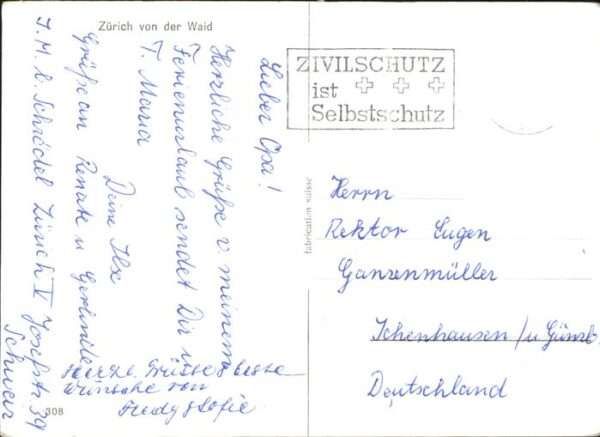 Zürich von der Waid
Lieber Opa!
Herzliche Grüße v. meinem
Ferienurlaub sendet Dir u.
T. Maria
Deine Ilse
Grüße an Renate u Gerlinde
I. M. b. Schrödel Zürich V Josefstr 39
Schweiz
Herzl. Grüsse & beste
Wünsche von
Fredy & Sofie
308
fabrication suisse
ZIVILSCHUTZ
ist
Selbstschutz
Herrn
Rektor Eugen
Ganzenmüller
Ichenhausen /u Günzb.
Deutschland